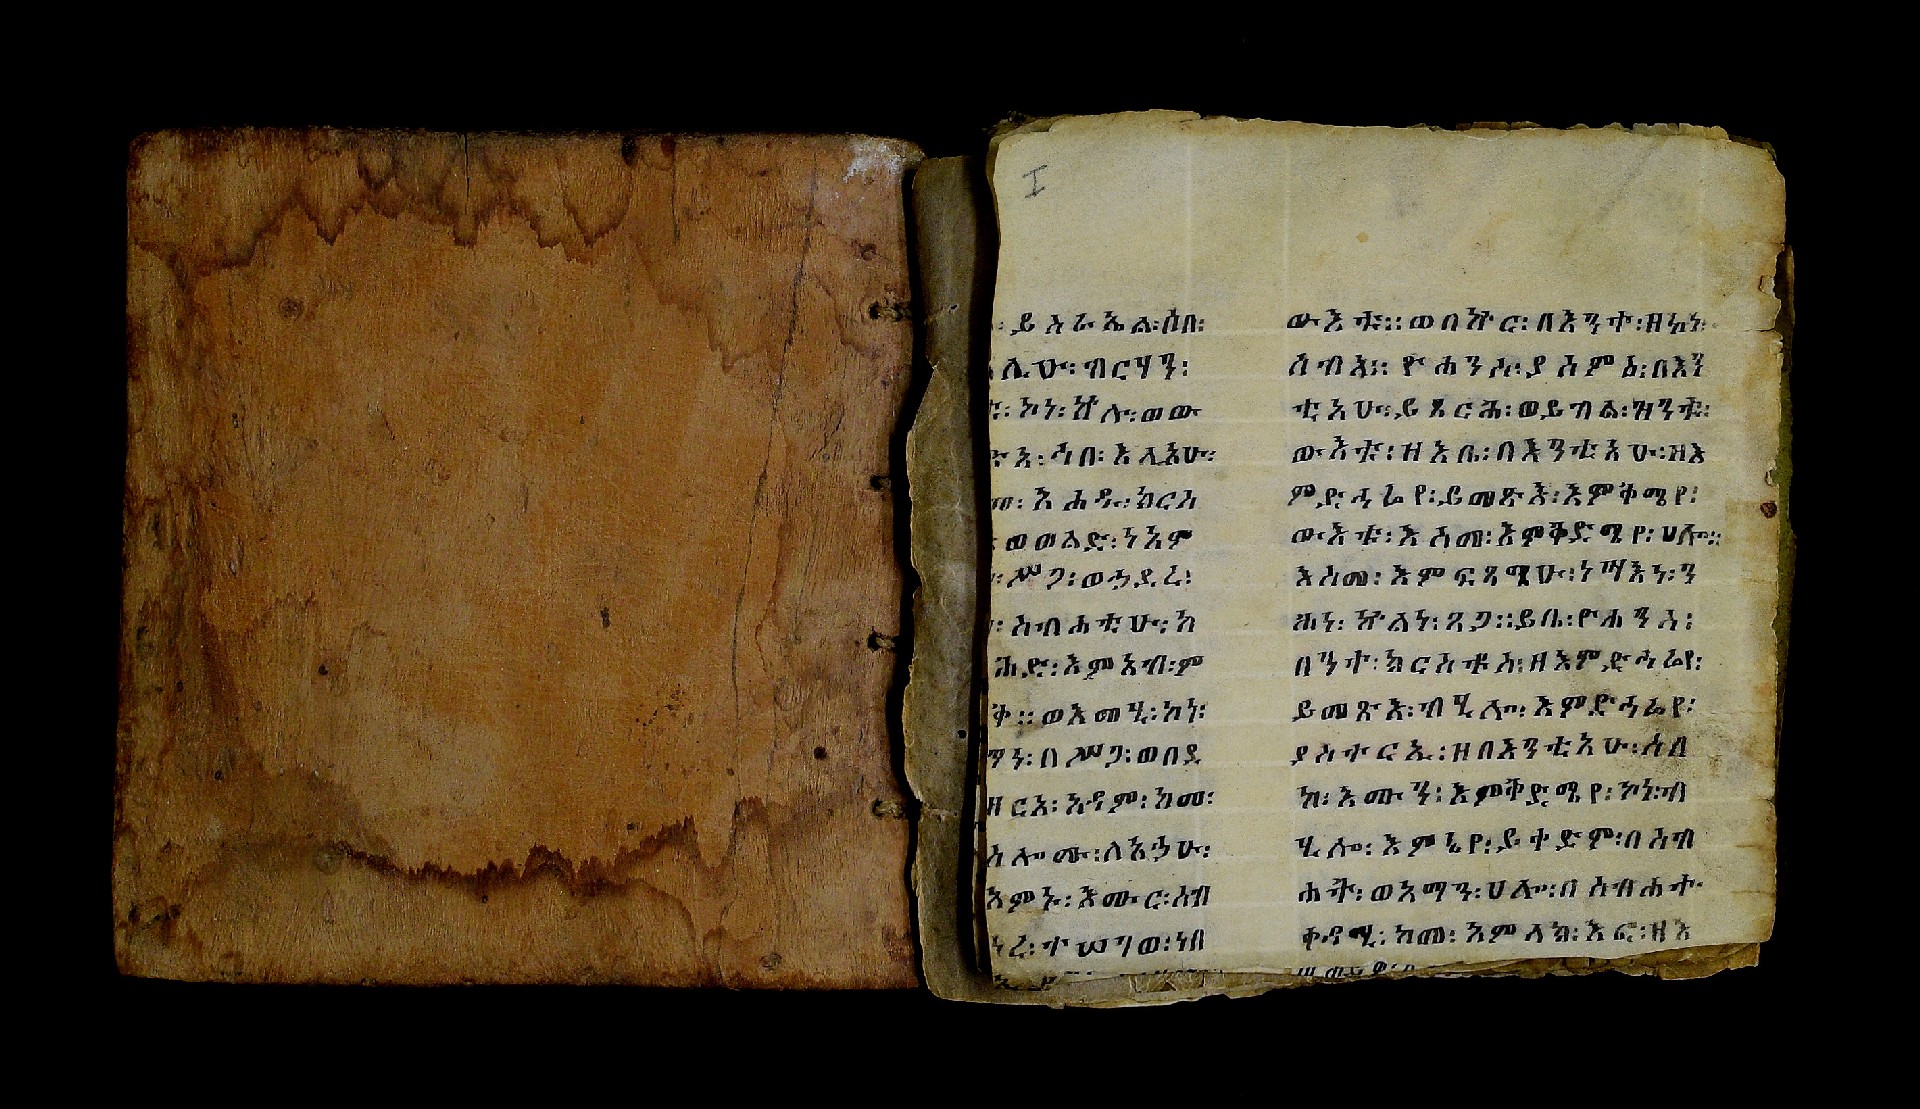 I
ይእራኤል፡ሰበ፡
ሊሁ፡ብርሃን፡
ኮነ፡ኵሉ፡ወው
እ፡ኀበ፡እሊአሁ፡
አሐዱ፡ክርስ
ወወልድ፡ነአም
ሥጋ፡ወኃደረ፡
ስብሐቲሁ፡ከ
ሕድ፡እምአብ፡ም
ቅ፡፡ወእመሂ፡ከነ፡
ማነ፡በሥጋ፡ወበደ
ዘርአ፡አዳም፡ከመ፡
እሎሙ፡ለአኃው፡
እምኑ፡እሙር፡ስብ
ነረ፡ተሠገወ፡ነበ
ውእቱ፡፡ወበኵር፡በእንተ፡ዘኤነ፡
ሰብእ፡፡ዮሐንሥ፡ያሰምዕ፡በእን
ቲአሁ፡ይጼርሕ፡ወይብል፡ዝንቱ፡
ውእቱ፡ዘእቤ፡በእንቲአሁ፡ዘእ
ምድኅሬየ፡ይመጽእ፡እምቅሜየ፡
ውእቱ፡እስመ፡እምቅድሜየ፡ሀሎ፡፡
እስመ፡እምፍጻሜሁ፡ነሣእነ፡ን
ሕነ፡ኵልነ፡ጸጋ፡፡ይቤ፡ዮሐንስ፡
በንተ፡ክርስቶስ፡ዘእምድኅሬየ፡
ይመጽእ፡ብሂሎ፡እምድኅሬየ፡
ያስተርኢ፡ዘበእንቲአሁ፡ሰበ
ከ፡እሙን፡እምቅድሜየ፡ኮነ፡ብ
ሂሎ፡እምኔየ፡ይቀድም፡በስብ
ሐት፡ወአማን፡ሀሎ፡በስብሐተ
ቀዳሚ፡ከመ፡አምላክ፡እፎ፡ዘእ